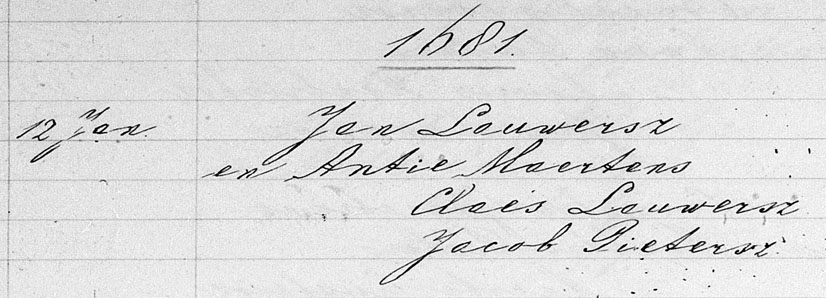 1681.
12 Jan. Jan Louwersz
en Antie Maertens
Claes Louwersz
Jacob Pietersz.